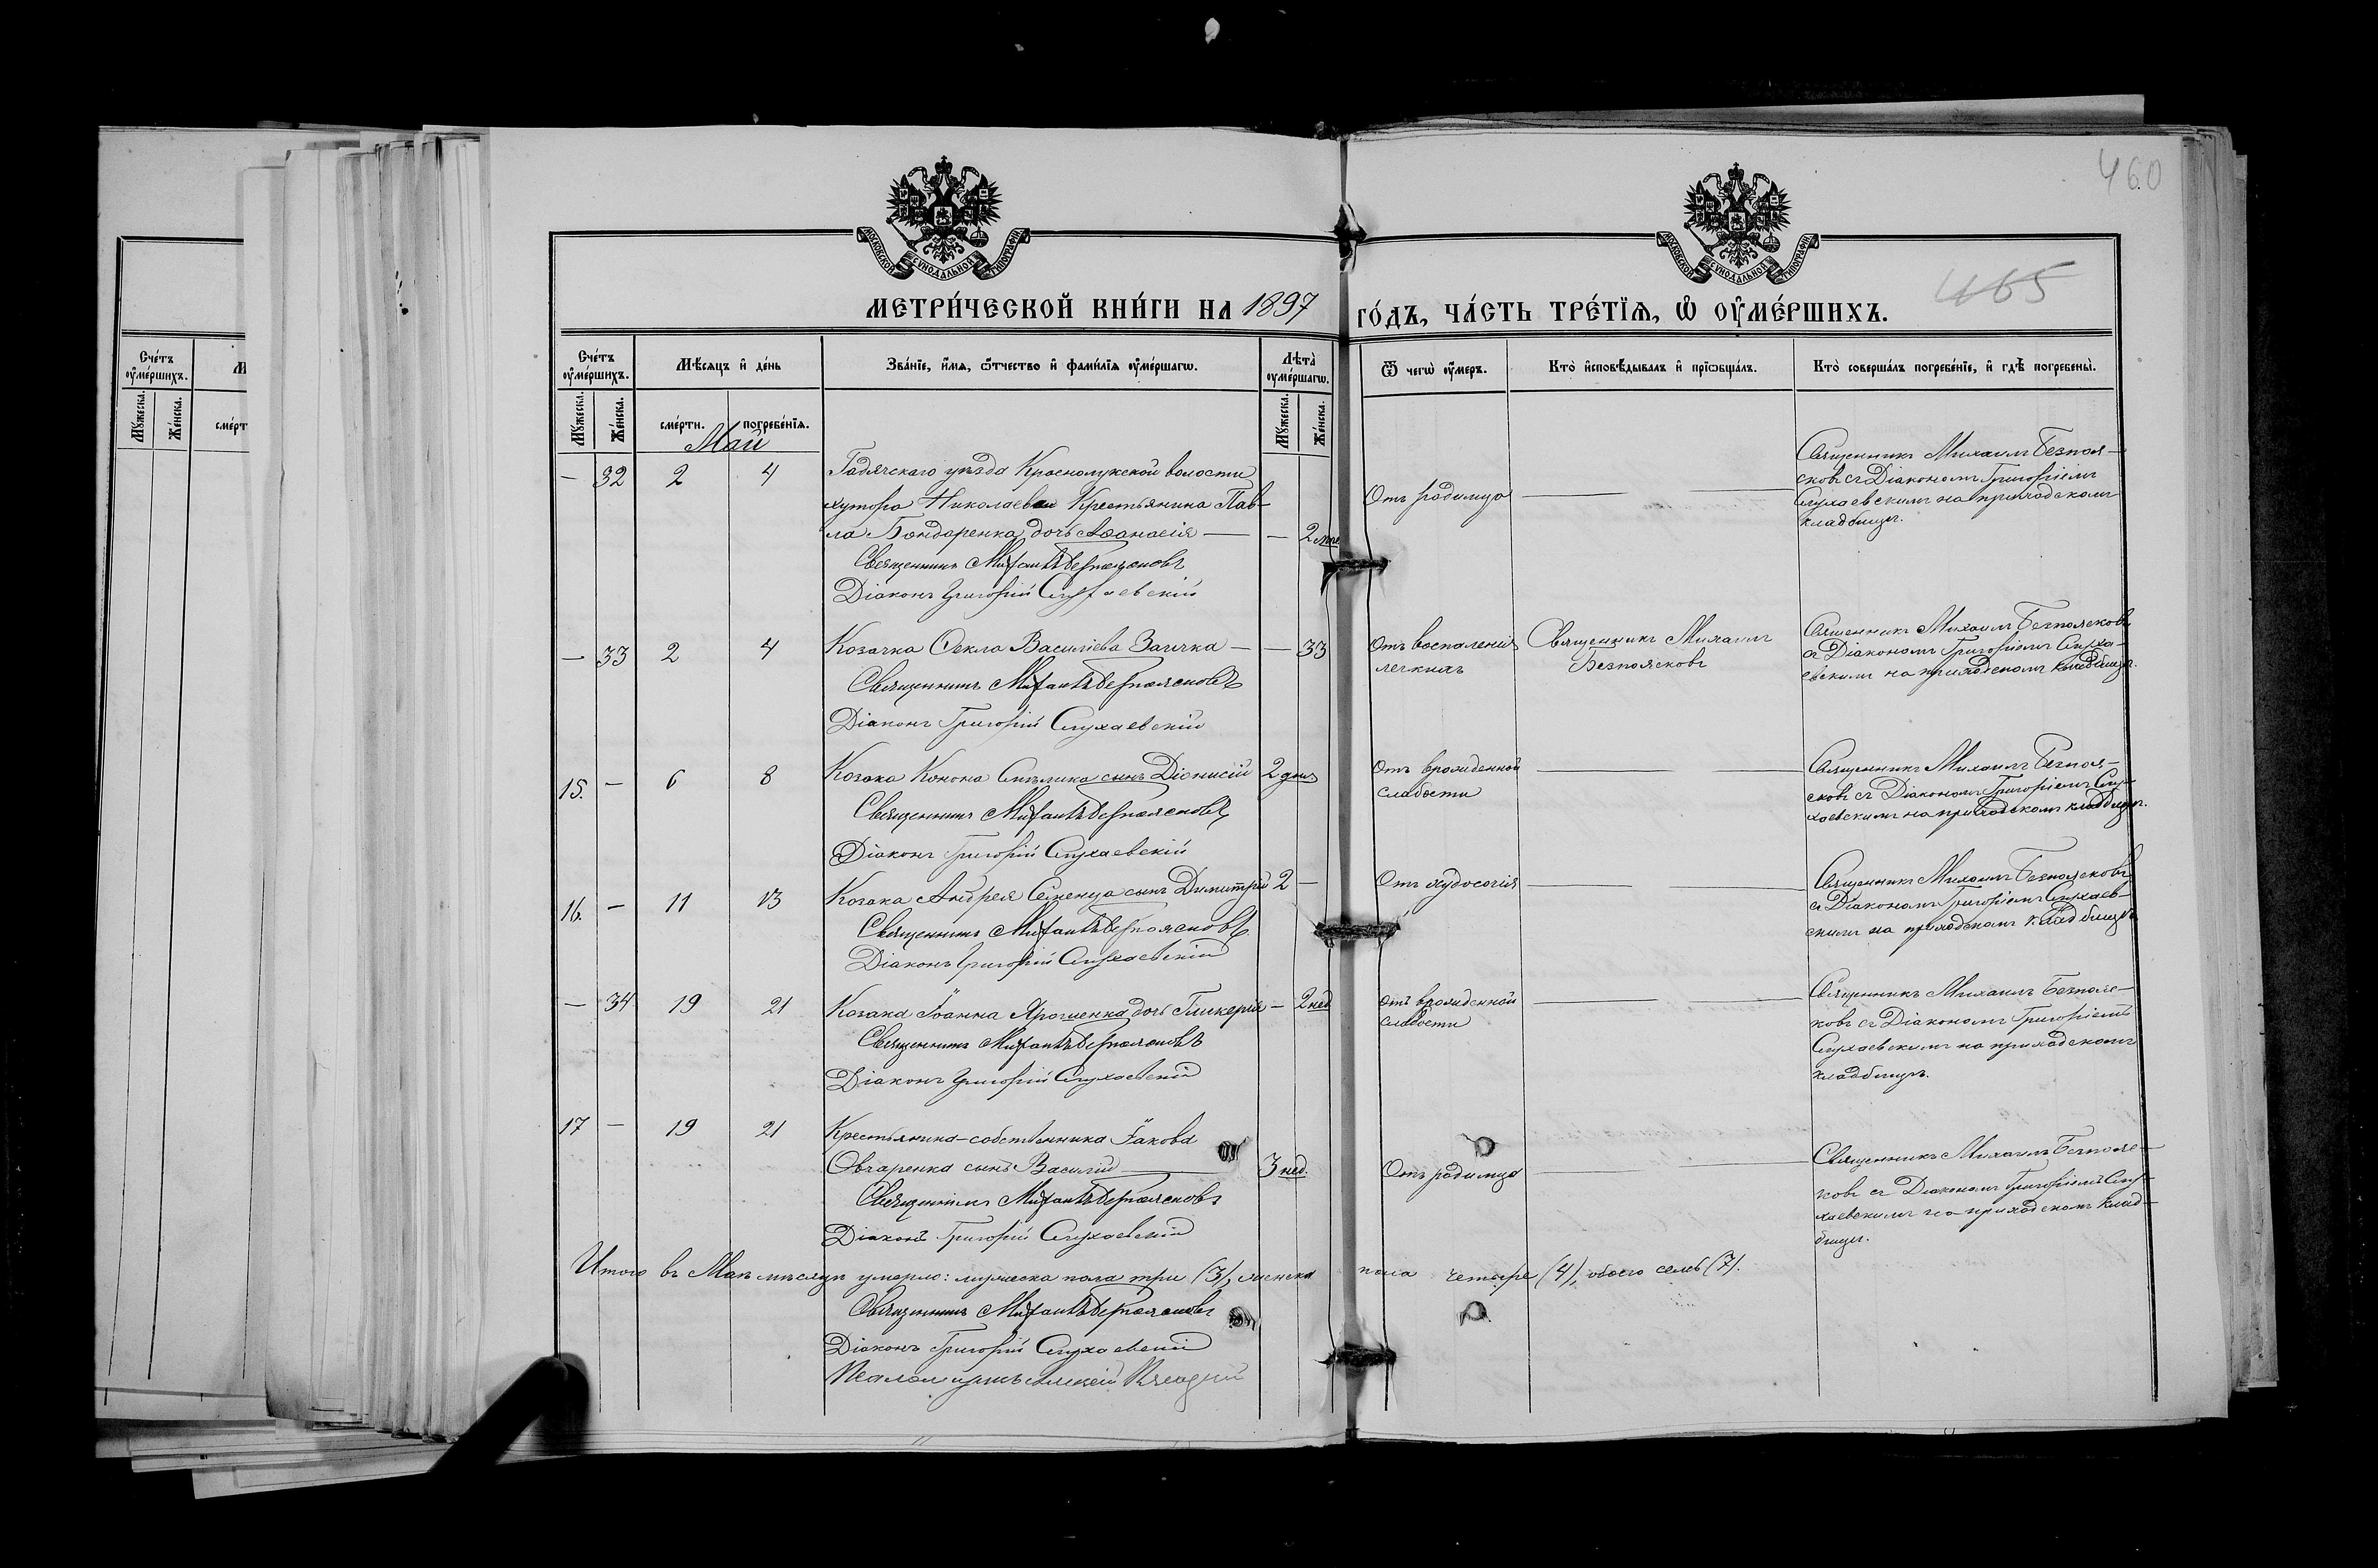 460
465
МОСКОВСКОЙ СѴНОДАЛЬНОЙ ТИПОГРАФІИ
МОСКОВСКОЙ СѴНОДАЛЬНОЙ ТИПОГРАФІИ
МЕТРИ́ЧЕСКОЙ КНИ́ГИ НА 1897 ГО́ДЪ, ЧА́СТЬ ТРЕ́ТЇѦ, Ѿ ОУ҆МЕ́РШИХЪ.
Сче́тъ оу҆ме́ршихъ.
Мꙋ́жеска.
Же́нска.
сме́рт
Сче́тъ оу҆ме́ршихъ.
Мѣ́сяцъ и҆ де́нь
Зва́нїе, и҆́мя, ѻ҆́тчество и҆ фами́лїя оу҆ме́ршагѡ.
Лѣта̀ оу҆ме́ршагѡ.
Ѿ чегѡ̀ оу҆́меръ.
Кто̀ и҆сповѣ́дывалъ и҆ прїѡбща́лъ.
Кто̀ соверша́лъ погребе́нїе, и҆ гдѣ̀ погребены̀.
Мꙋ́жеска.
Же́нска.
сме́рти.
погребе́нїя.
Мꙋ́жеска.
Же́нска.
Май
— 32 2 4
Гадячскаго уѣзда Краснолукской волости
хутора Николаевки Крестьянина Пав-
ла Бондаренка дочь Аѳанасія — — 2 мѣс
Священникъ Михаилъ Безпоясковъ
Діаконъ Григорій Слухаевскій
Отъ родимца
Священникъ Михаилъ Безпоя-
сковъ съ Діакономъ Григоріемъ
Слухаевскимъ на приходскомъ
кладбищѣ.
— 33 2 4
Козачка Ѳекла Василіева Заичка — — 33
Священникъ Михаилъ Безпоясковъ
Діаконъ Григорій Слухаевскій
Отъ воспаленія
легкихъ
Священникъ Михаилъ
Безпоясковъ
Священникъ Михаилъ Безпоясковъ
съ Діакономъ Григоріемъ Слуха-
евскимъ на приходскомъ кладбищѣ.
15. — 6 8
Козака Конона сынъ Діонисій 2 дня
Священникъ Михаилъ Безпоясковъ
Діаконъ Григорій Слухаевскій
Отъ врожденной
слабости
Священникъ Михаилъ Безпоя-
сковъ съ Діакономъ Григоріемъ Слу-
хаевскимъ на приходскомъ кладбищѣ.
16. — 11 13
Козака Андрея Семенца сынъ Димитрій 2 —
Священникъ Михаилъ Безпоясковъ
Діаконъ Григорій Слухаевскій
Отъ худосочія
Священникъ Михаилъ Безпоясковъ
съ Діакономъ Григоріемъ Слухаев-
скимъ на приходскомъ кладбищѣ
— 34 19 21
Козака Іоанна Ярошенка дочь Гликерія — 2 нед.
Священникъ Михаилъ Безпоясковъ
Діаконъ Григорій Слухаевскій
Отъ врожденной
слабости
Священникъ Михаилъ Безпояс-
ковъ съ Діакономъ Григоріемъ
Слухаевскимъ на приходскомъ
кладбищѣ.
17 — 19 21
Крестьянина-собственника Іакова
Овчаренка сынъ Василій — 3 нед.
Священникъ Михаилъ Безпоясковъ
Діаконъ Григорій Слухаевскій
Отъ родимца
Священникъ Михаилъ Безпояс-
ковъ съ Діакономъ Григоріемъ Слу-
хаевскимъ на приходскомъ клад-
бищѣ.
Итого въ Маѣ мѣсяцѣ умерло: мужеска пола три (3), женска пола четыре (4), обоего семь (7).
Священникъ Михаилъ Безпоясковъ
Діаконъ Григорій Слухаевскій
Псаломщикъ Алексій